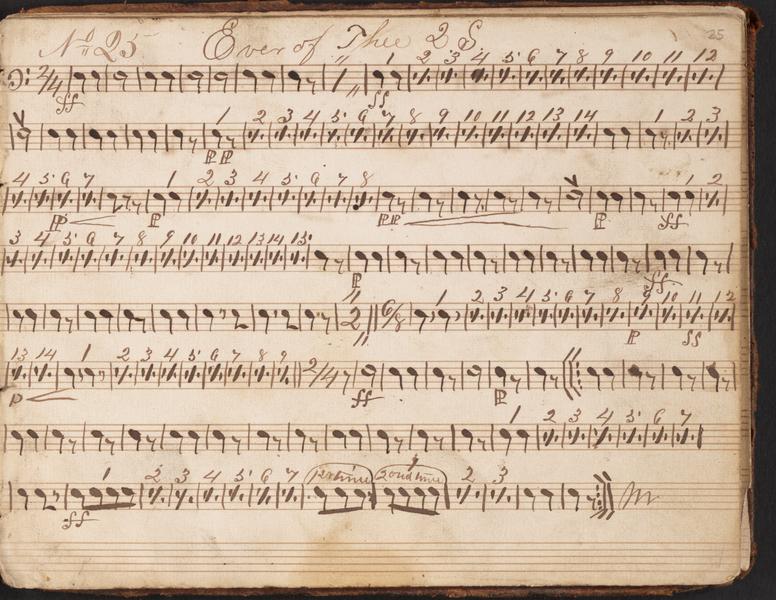 No 25 Ever of Thee 2 S 25
1 2 3 4 5 6 7 8 9 10 11 12
2/4 1
ff ff
1 2 3 4 5 6 7 8 9 10 11 12 13 14 1 2 3
PP
4 5 6 7 1 2 3 4 5 6 7 8 1 2
P P PP P ff
3 4 5 6 7 8 9 10 11 12 13 14 15
P ff
1 2 3 4 5 6 7 8 9 10 11 12
2 6/8
P ff
13 14 1 2 3 4 5 6 7 8 9
2/4
P ff P
1 2 3 4 5 6 7
1 2 3 4 5 6 7 1st time 2ond time 2 3
ff